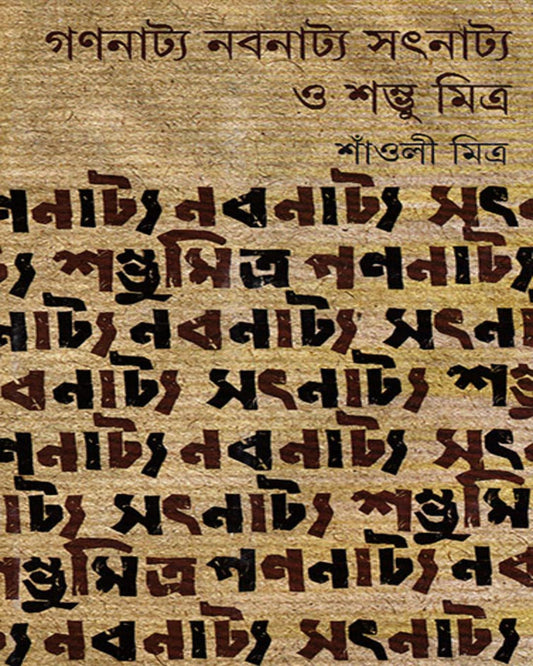 গণনাট্য নবনাট্য সৎনাট্য
ও শম্ভু মিত্র
শাঁওলী মিত্র
ণনাট্য নবনাট্য সৎন
্য শম্ভুমিত্র গণনাট্য
নাট্য নবনাট্য সৎনা
বনাট্য সৎনাট্য শম্ভু
ণনাট্য নবনাট্য সৎন
াট্য সৎনাট্য শম্ভুমি
শম্ভুমিত্র গণনাট্য নব
্য নবনাট্য সৎনাট্য